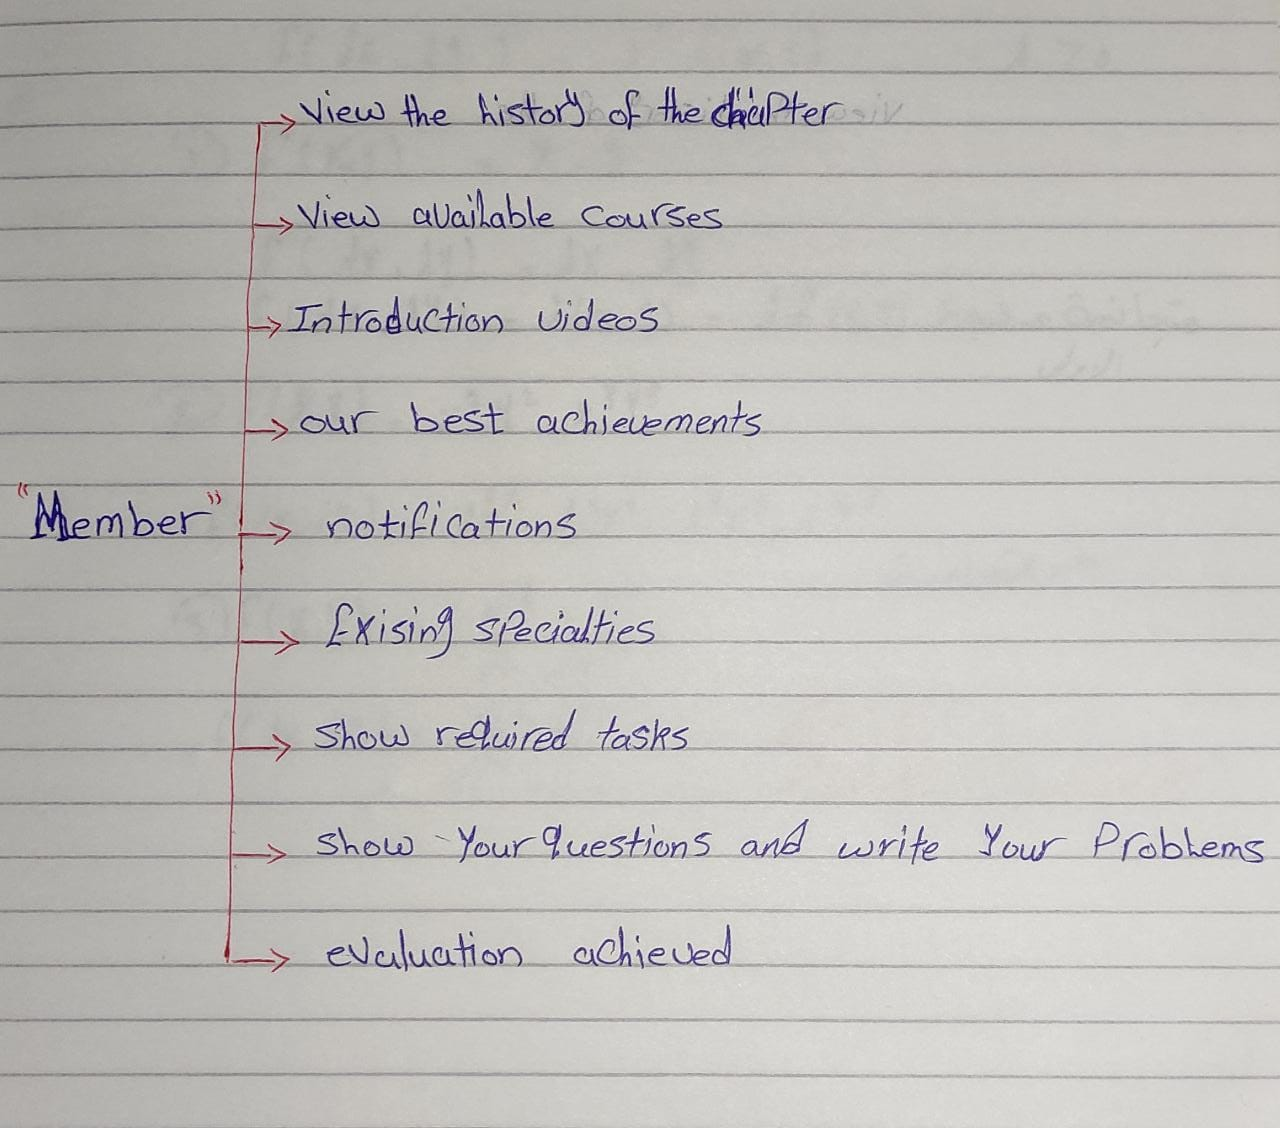 View the history of the chapter
View available courses
Introduction videos
our best achievements
"Member"
notifications
Exising specialties
show required tasks
show Your questions and write Your Problems
evaluation achieved